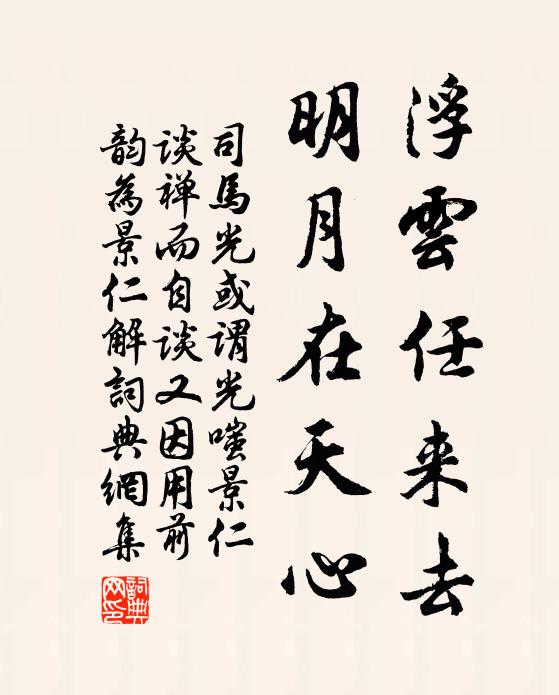 浮雲任来去
明月在天心
司馬光或謂光嗤景仁
談禅而自談又因用前
韵為景仁解詞典網集
詞典网印